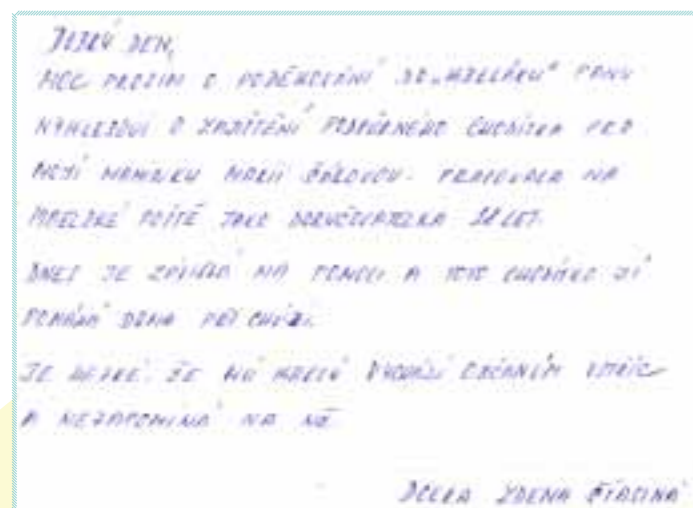 DOBRÝ DEN,
MOC PROSÍM O PODĚKOVÁNÍ DO „MZELÁKU“ PANU
O ZAJIŠTĚNÍ PODPŮRNÉHO CHODÍTKA PRO
MOJÍ MAMINKU MARII PRACOVALA NA
POŠTĚ JAKO DORUČOVATELKA LET.
DNES JE ZÁVISLÁ NA POMOCI A TOTO CHODÍTKO JÍ
POMÁHÁ DOMA PŘI CHŮZI.
JE HEZKÉ, ŽE VYCHÁZÍ OBČANŮM VSTŘÍC
A NEZAPOMÍNÁ NA NĚ
DCERA ZDENA